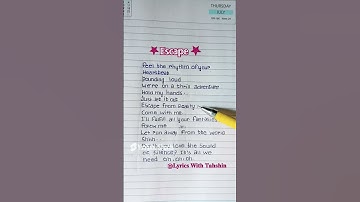 THURSDAY
JULY
Escape
Feel the rhythm of your
Heartbeat
Pounding loud
We're on a thrill adventure
Hold my hands
Just let it go
Escape from Reality
Come with me
I'll fulfill all your fantasies
Follow me
Let run away from the world
Shhh
Don't you love the sound
of silence? It's all we
need oh oh oh
@Lyrics With Tahshin